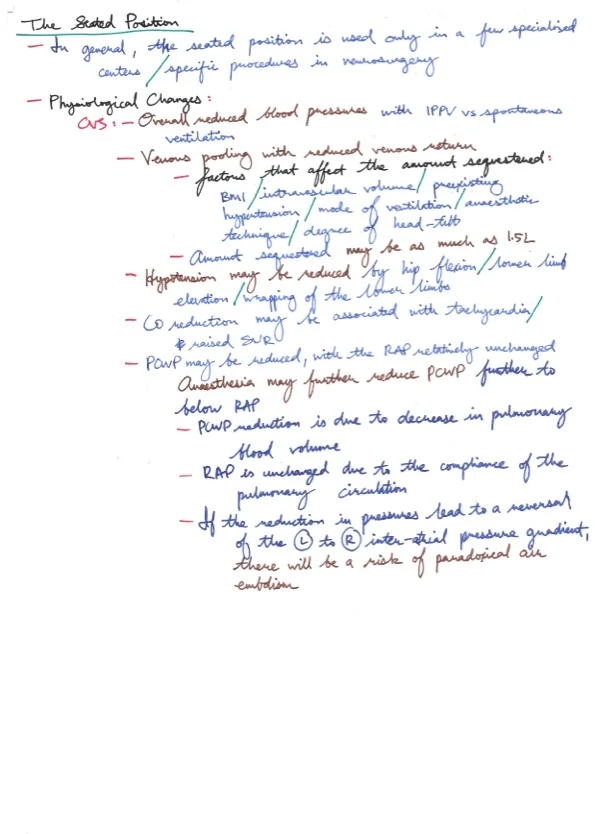 The Seated Position
- In general, the seated position is used only in a few specialised
centers / specific procedures in neurosurgery
- Physiological Changes:
CVS: - Overall reduced blood pressures with IPPV vs spontaneous
ventilation
- Venous pooling with reduced venous return
- factors that affect the amount sequestered:
BMI / intravascular volume / preexisting
hypertension / mode of ventilation / anaesthetic
technique / degree of head-tilt
- Amount sequestered may be as much as 1.5L
- Hypotension may be reduced by hip flexion / lower limb
elevation / wrapping of the lower limbs
- CO reduction may be associated with tachycardia /
raised SVR
- PCWP may be reduced, with the RAP relatively unchanged
Anaesthesia may further reduce PCWP further to
below RAP
- PCWP reduction is due to decrease in pulmonary
blood volume
- RAP is unchanged due to the compliance of the
pulmonary circulation
- If the reduction in pressures lead to a reversal
of the (L) to (R) inter-atrial pressure gradient,
there will be a risk of paradoxical air
embolism